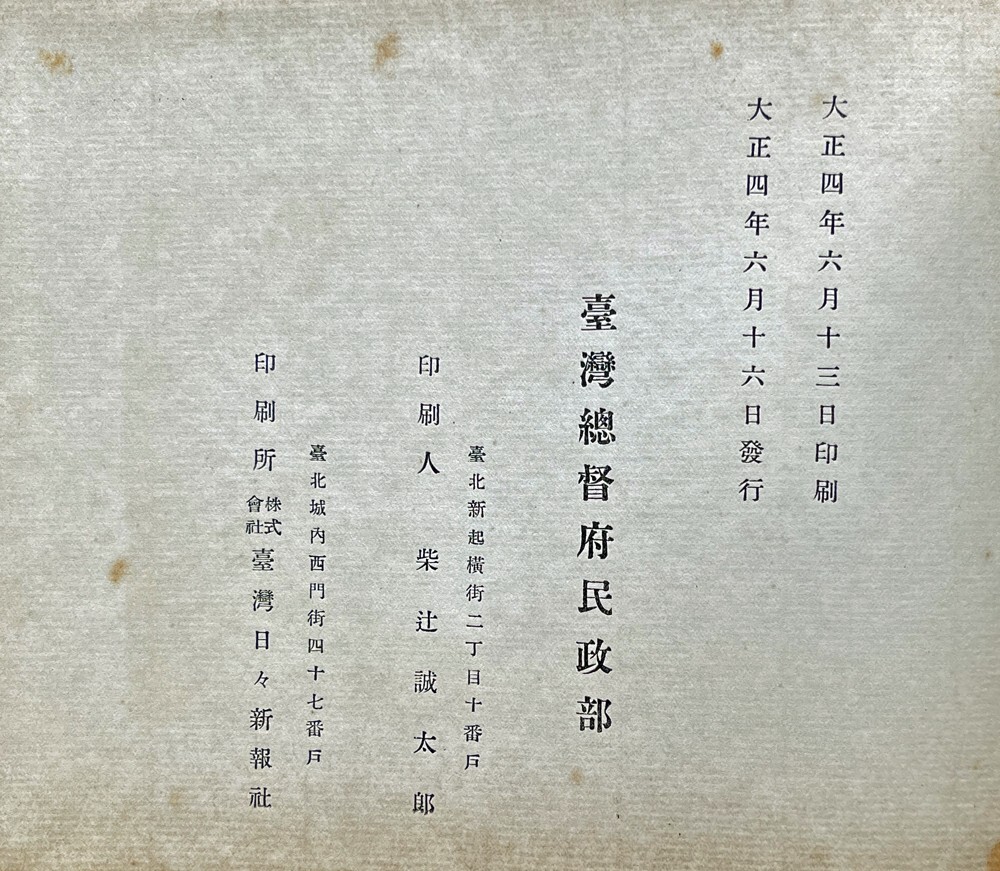 大正四年六月十三日印刷
大正四年六月十六日發行
臺灣總督府民政部
臺北新起橫街二丁目十番戶
印刷人 柴辻誠太郎
臺北城內西門街四十七番戶
印刷所 株式會社 臺灣日々新報社